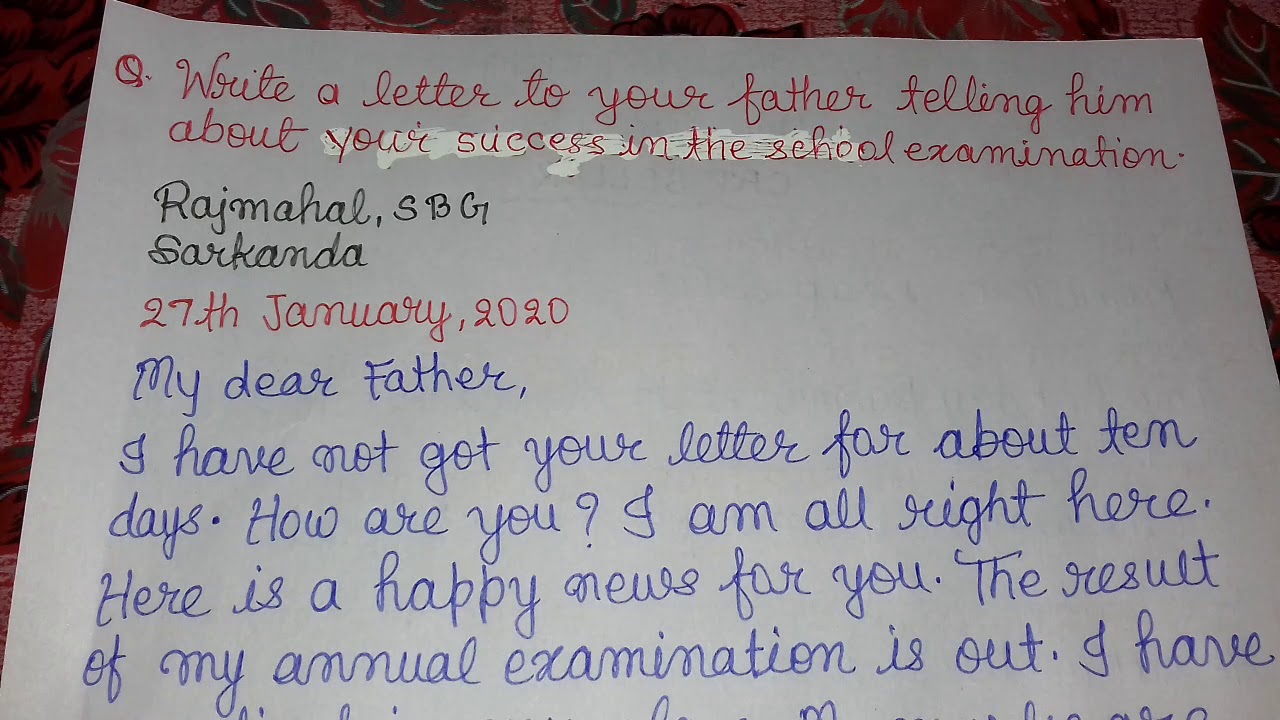 Q. Write a letter to your father telling him
about your success in the school examination.
Rajmahal, SBG
Sarkanda
27th January, 2020
My dear Father,
I have not got your letter for about ten
days. How are you? I am all right here.
Here is a happy news for you. The result
of my annual examination is out. I have